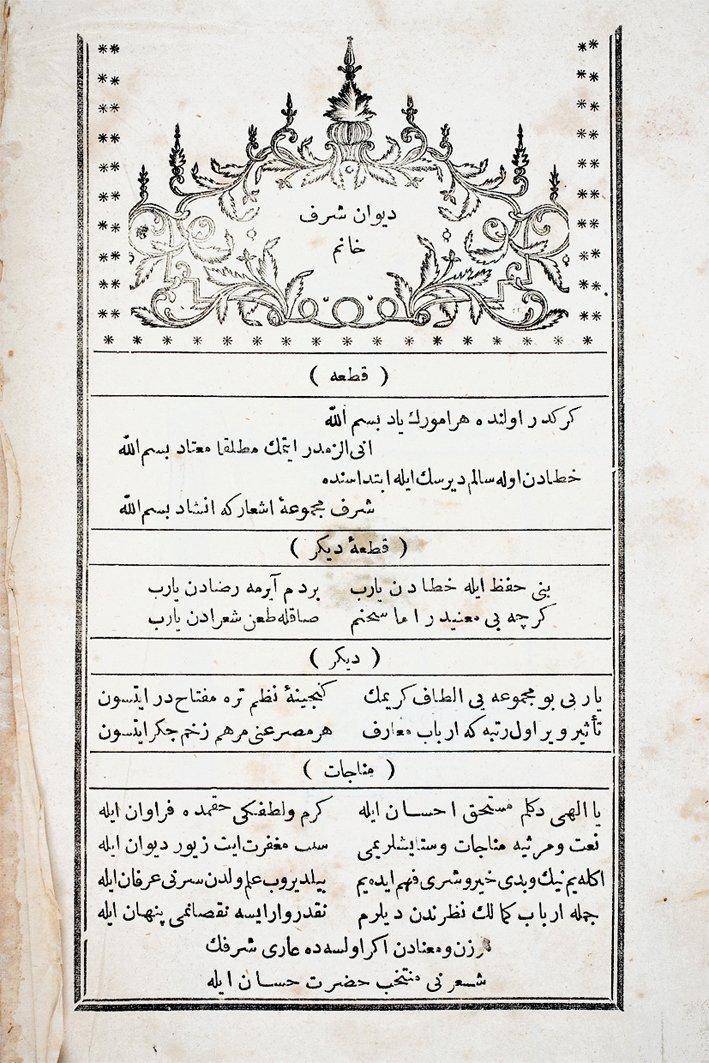 ديوان شرف
خانم
( قطعه )
كركدر اولنده هر امورك ياد بسم الله
انى الزمدر ايتمك مطلقا معتاد بسم الله
خطادن اوله سالم ديرسك ايله ابتداسنده
شرف مجموعهٔ اشعاركه انشاد بسم الله
( قطعهٔ ديكر )
بنى حفظ ايله خطادن يارب بردم آيرمه رضادن يارب
كرچه بى معنيدر اما سخنم صاقله طعن شعرادن يارب
( ديكر )
ياربى بو مجموعه يى الطاف كريمك كنجينهٔ نظم تره مفتاح در ايتسون
تأثير وير اول رتبه كه ارباب معارف هر مصرعنى مرهم زخم جكر ايتسون
( مناجات )
يا الهى دكلم مستحق احسان ايله كرم ولطفكى حقمده فراوان ايله
نعت ومرثيه مناجات وستايشلريمى سبب مغفرت ايت زيور ديوان ايله
اكله يم نيك وبدى خير وشرى فهم ايده يم بيلديروب علم ولدن سرنى عرفان ايله
جمله ارباب كمالك نظرندن ديلرم نقدر وارايسه نقصانمى پنهان ايله
وزن ومعنادن اكر اولسه ده عارى شرفك
شعرنى منتخب حضرت حسان ايله